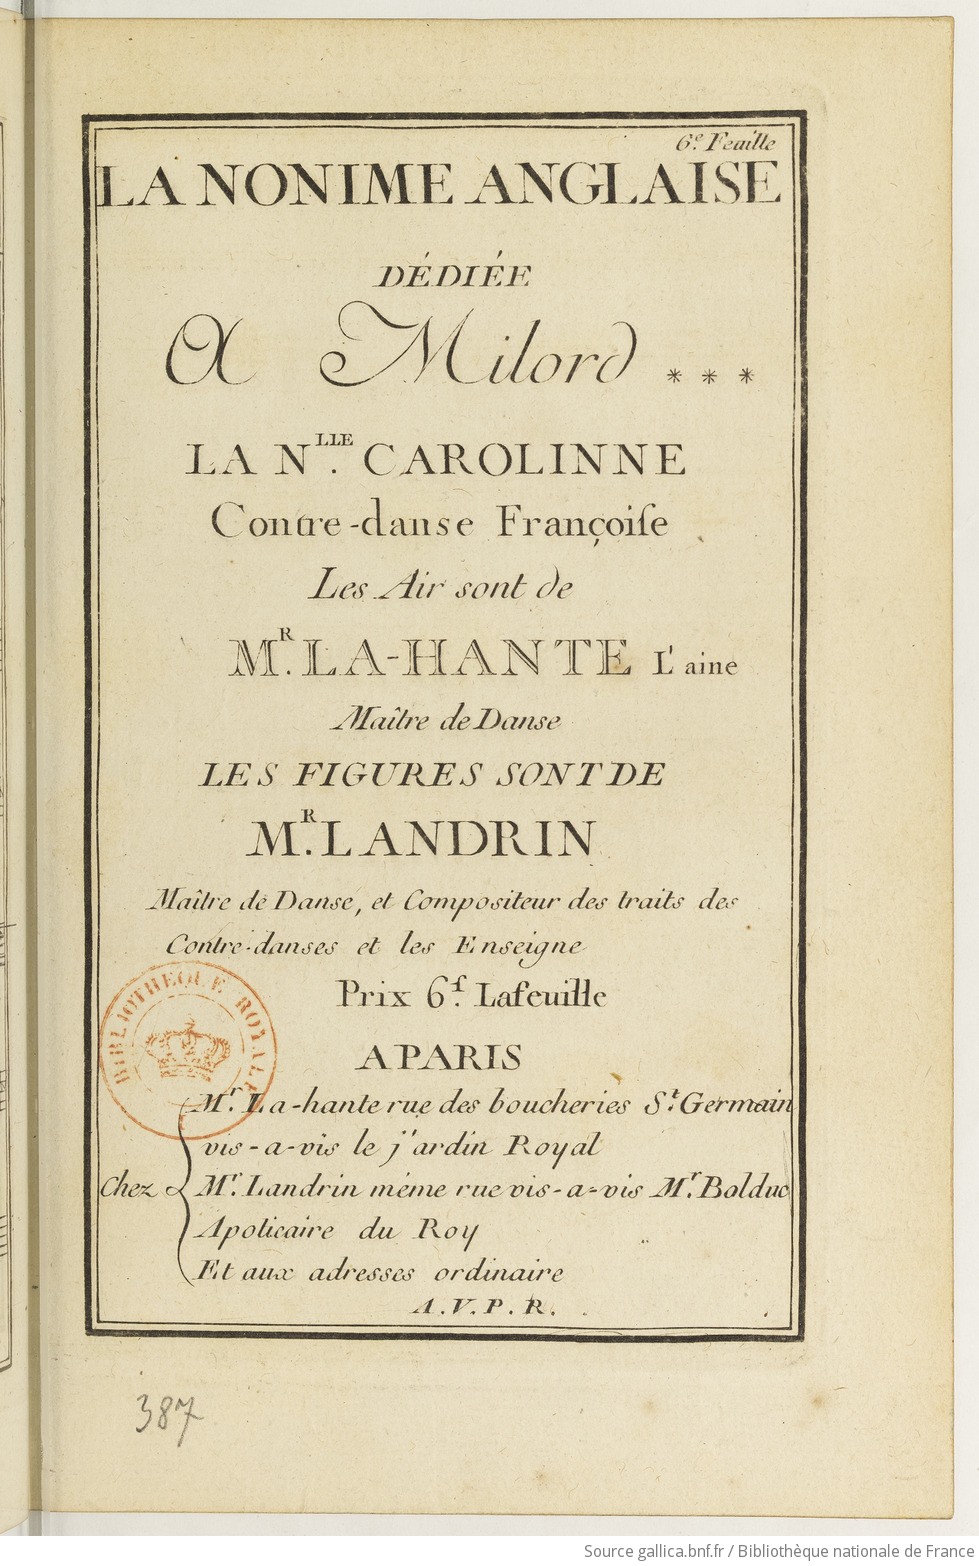 6.e Feuille
LA NONIME ANGLAISE
DÉDIÉE
A Milord ***
LA N.LLE CAROLINNE
Contre-danse Françoiſe
Les Air sont de
M.R LA-HANTE L'aine
Maître de Danse
LES FIGURES SONT DE
M.R LANDRIN
Maître de Danse, et Compositeur des traits des
Contre-danses et les Enseigne
Prix 6.f Lafeuille
A PARIS
M.r La-hante rue des boucheries S.t Germain
vis-a-vis le j'ardin Royal
Chez M.r Landrin méme rue vis-a-vis M.r Bolduc
Apoticaire du Roy
Et aux adresses ordinaire
A.V.P.R.
BIBLIOTHEQUE ROYALE
387
Source gallica.bnf.fr / Bibliothèque nationale de France